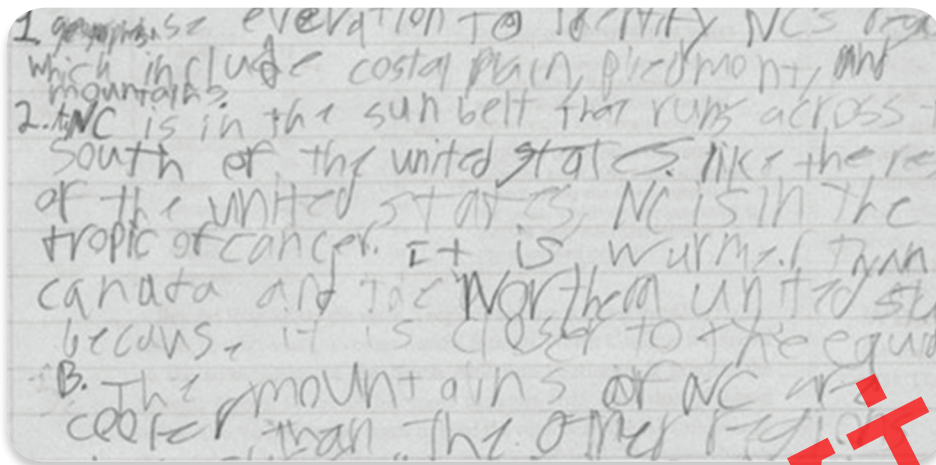 1. use elevation to identify NC's
which include costal plain, piedmont, and
mountains.
2. NC is in the sun belt that runs across
South of the united states. like the
of the united states, NC is in the
tropic of cancer. It is wurmer than
canada and the Northern united
becaus. it is closer to the
B. The mountains of NC are
cooler than the other